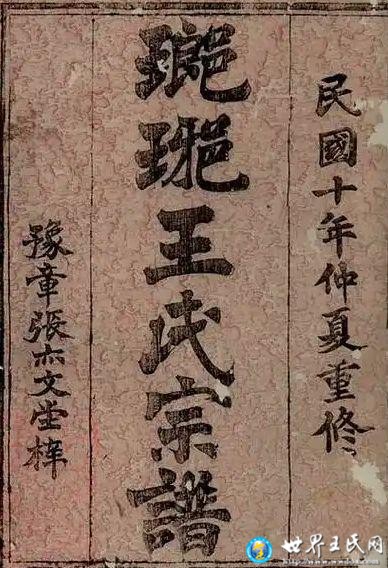 民國十年仲夏重修
瑯琊王氏宗譜
豫章張亦文堂梓
世界王氏网